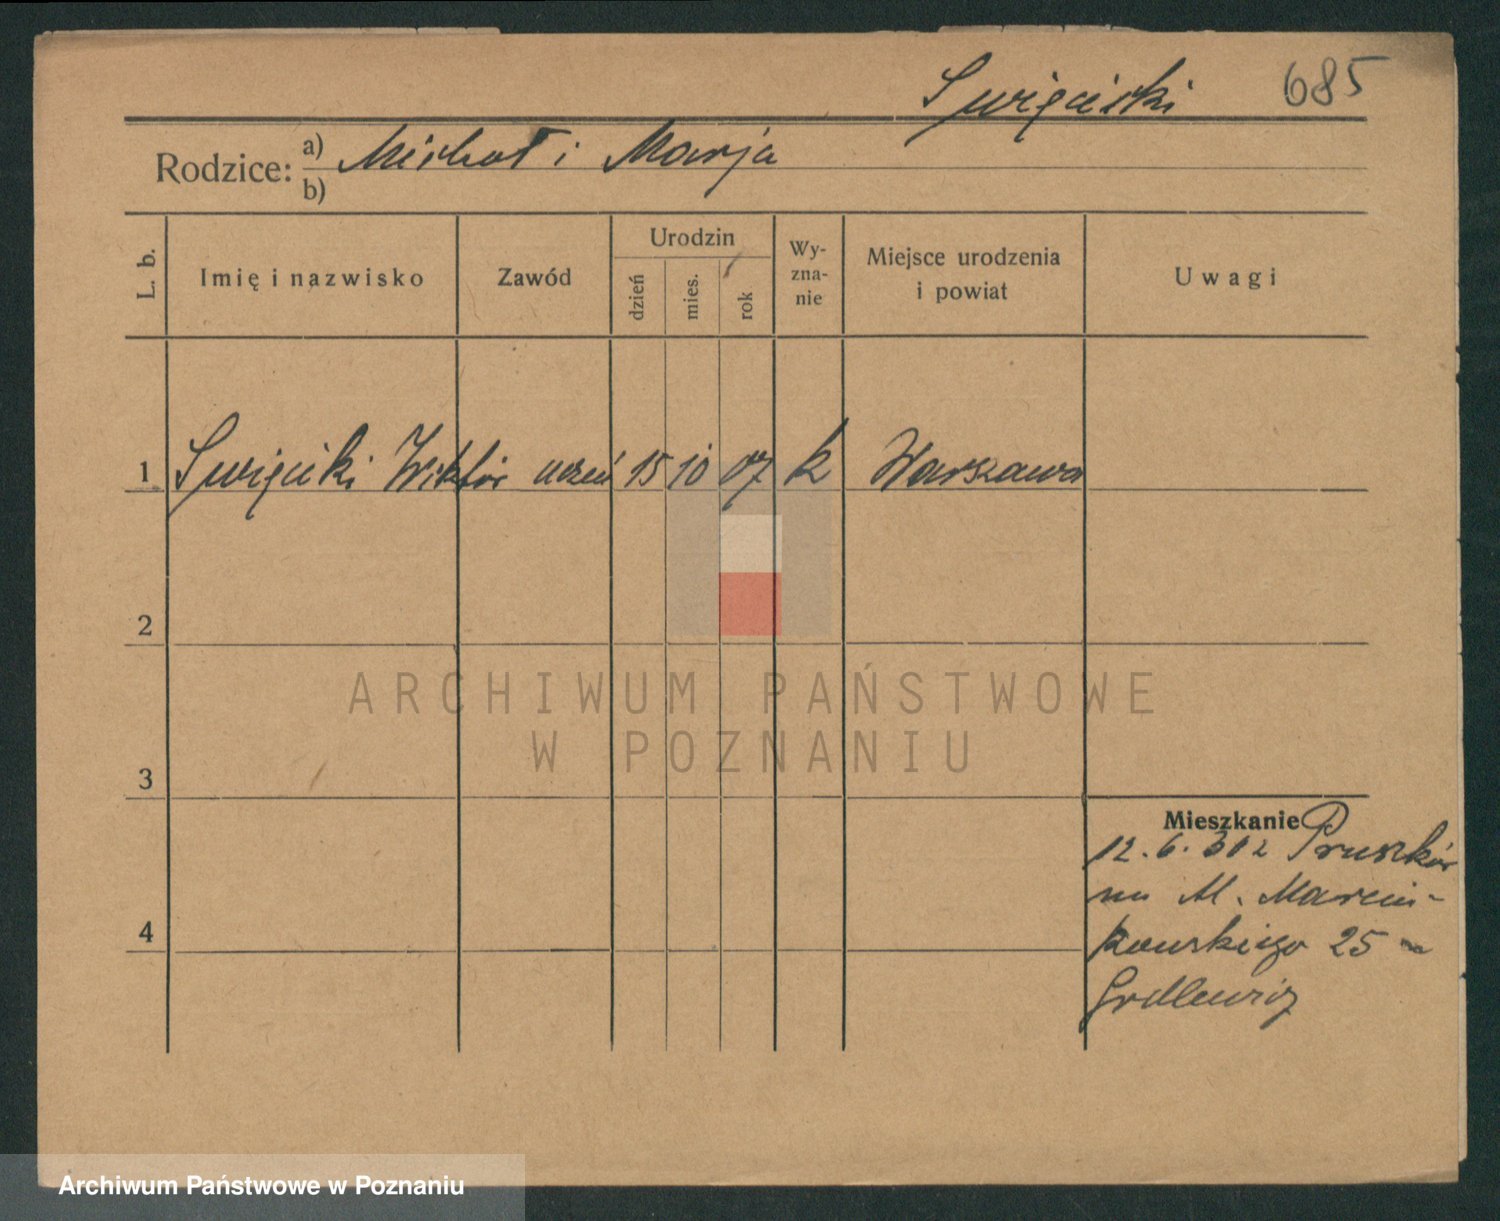 Swięcicki 685
Rodzice: a) Michał i Marja
b)
L. b.
Imię i nazwisko
Zawód
Urodzin
dzień
mies.
rok
Wy-
zna-
nie
Miejsce urodzenia
i powiat
Uwagi
1 Swięcicki Wiktór uczeń 15 10 07 k Warszawa
2
3
4
Mieszkanie
12.6. Pruszków
M. Marcin-
kowskiego 25
ARCHIWUM PAŃSTWOWE
W POZNANIU
Archiwum Państwowe w Poznaniu